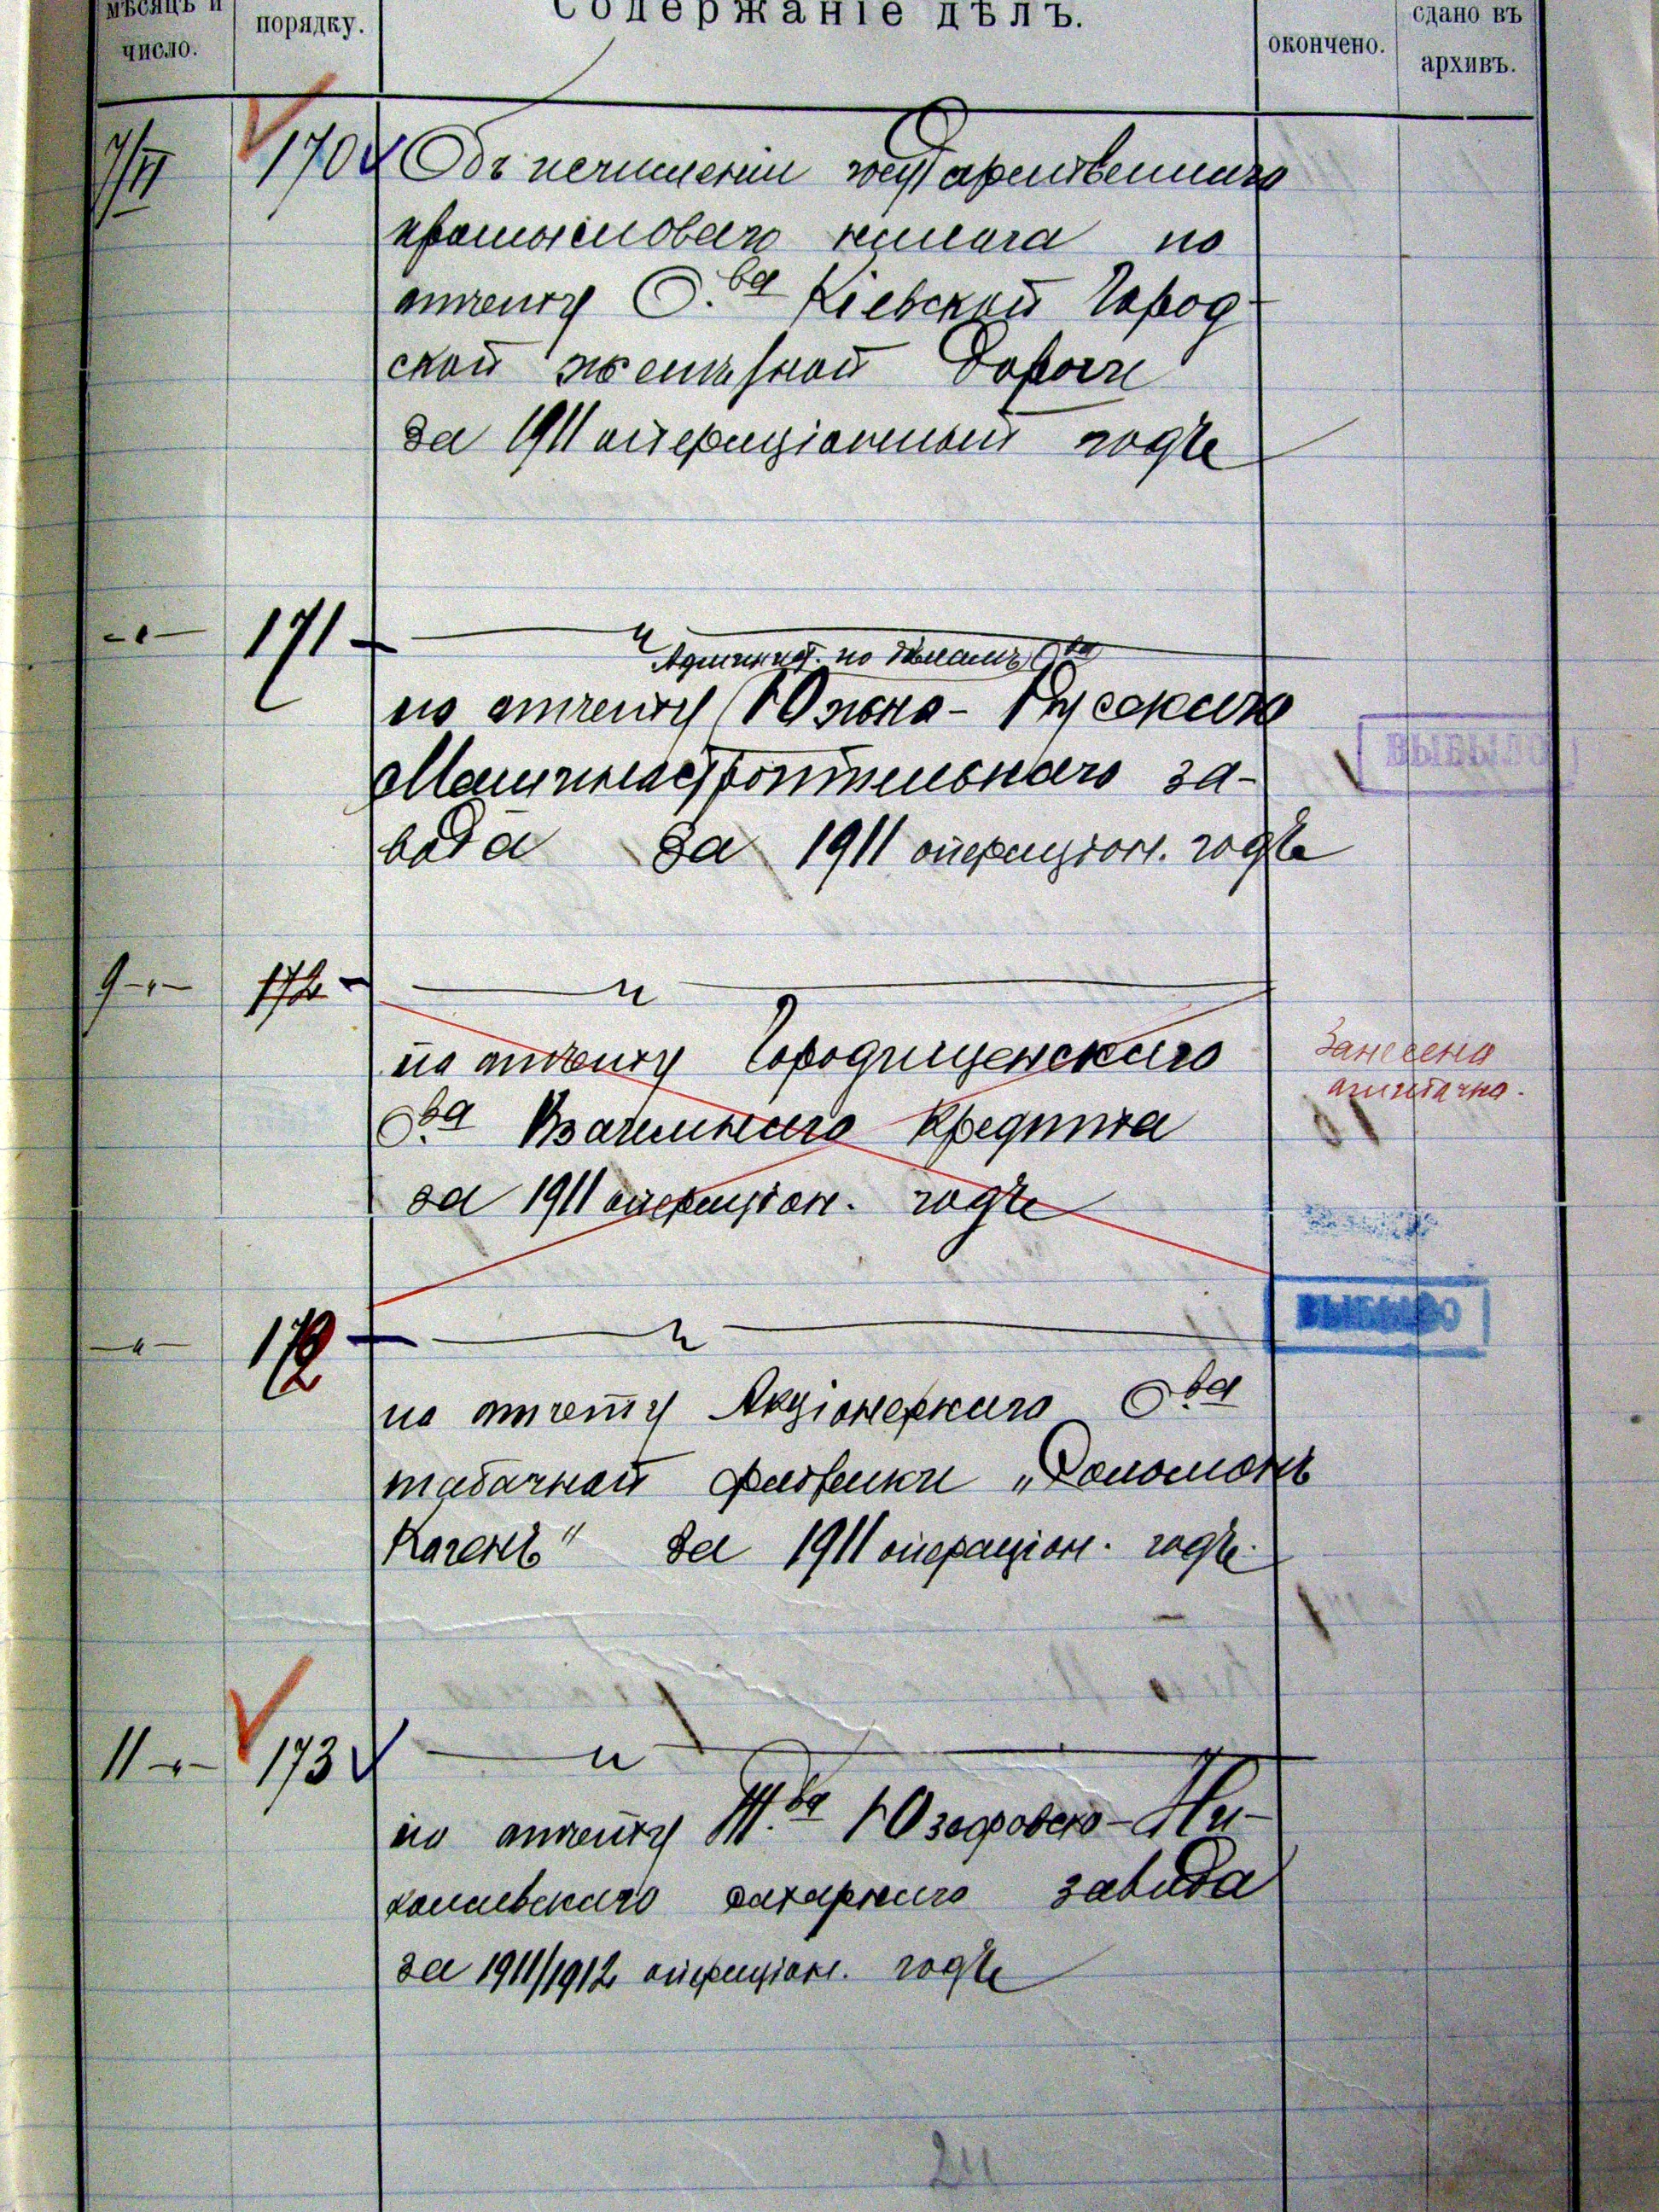 мѣсяцъ и
число.
порядку.
Содержаніе дѣлъ.
окончено.
сдано въ
архивъ.
7/VI 170 Объ исчисленіи государственнаго
промысловаго налога по
отчету О.ва Кіевской Город-
ской желѣзной дороги
за 1911 операціонный годъ
-"- 171 — " —
Админист. по дѣламъ О.ва
по отчету Южно-Русскаго
Машиностроительнаго за-
вода за 1911 операціон. годъ
ВЫБЫЛО
9 -"- 172 — " —
по отчету Городищенскаго
О.ва Взаимнаго Кредита
за 1911 операціон. годъ
Занесено
ошибочно.
-"- 172 — " —
ВЫБЫЛО
по отчету Акціонернаго О.ва
табачной фабрики „Соломонъ
Когенъ" за 1911 операціон. годъ.
11 -"- 173 — " —
по отчету Т.ва Юзефовско-Ни-
колаевскаго сахарнаго завода
за 1911/1912 операціон. годъ
24